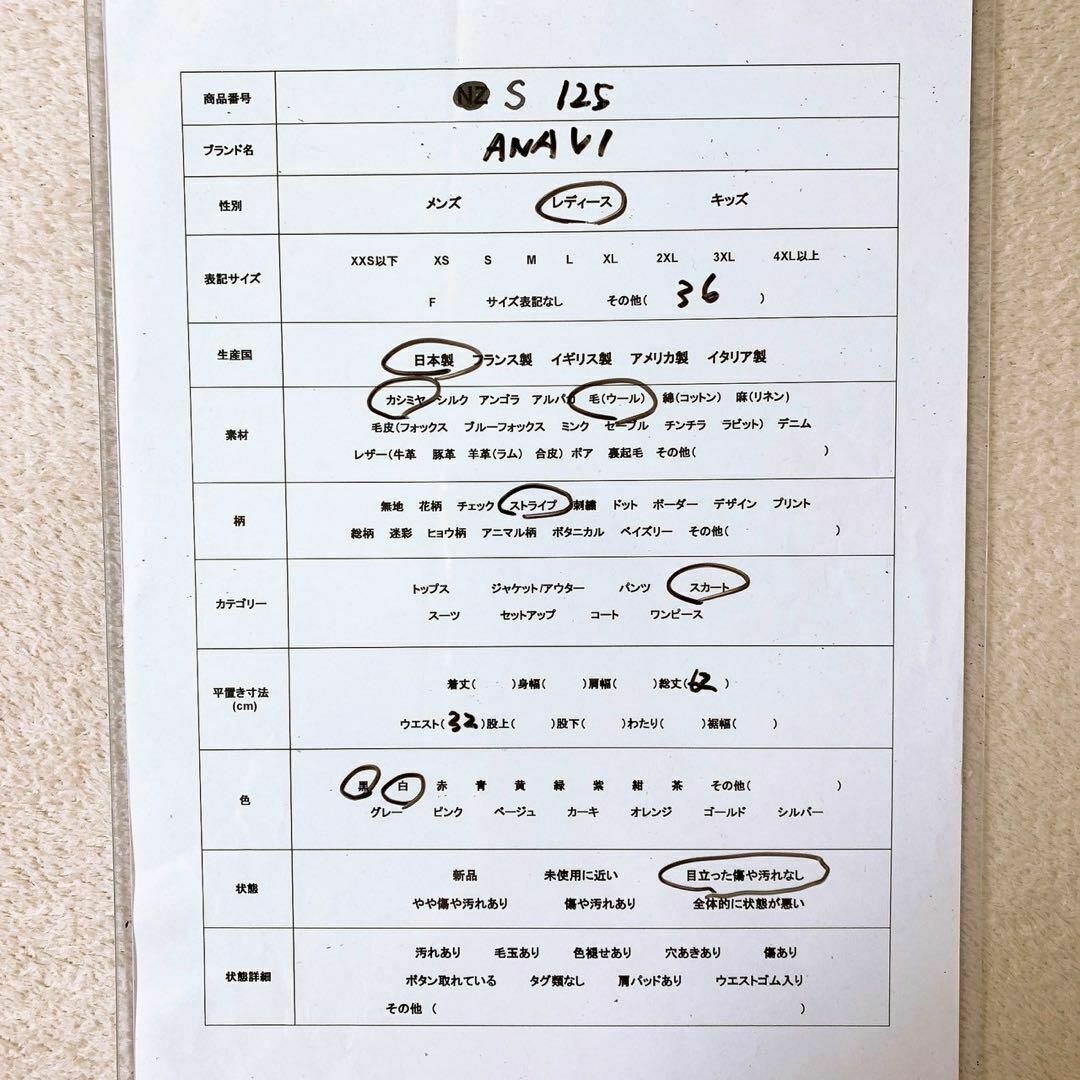 商品番号 NZ S 125
ブランド名 ANAVI
性別 メンズ レディース キッズ
表記サイズ
XXS以下 XS S M L XL 2XL 3XL 4XL以上
F サイズ表記なし その他( 36 )
生産国 日本製 フランス製 イギリス製 アメリカ製 イタリア製
素材
カシミヤ シルク アンゴラ アルパカ 毛(ウール) 綿(コットン) 麻(リネン)
毛皮(フォックス ブルーフォックス ミンク セーブル チンチラ ラビット) デニム
レザー(牛革 豚革 羊革(ラム) 合皮) ボア 裏起毛 その他( )
柄
無地 花柄 チェック ストライプ 刺繍 ドット ボーダー デザイン プリント
総柄 迷彩 ヒョウ柄 アニマル柄 ボタニカル ペイズリー その他( )
カテゴリー
トップス ジャケット/アウター パンツ スカート
スーツ セットアップ コート ワンピース
平置き寸法
(cm)
着丈( )身幅( )肩幅( )総丈(62 )
ウエスト(32)股上( )股下( )わたり( )裾幅( )
色
黒 白 赤 青 黄 緑 紫 紺 茶 その他( )
グレー ピンク ベージュ カーキ オレンジ ゴールド シルバー
状態
新品 未使用に近い 目立った傷や汚れなし
やや傷や汚れあり 傷や汚れあり 全体的に状態が悪い
状態詳細
汚れあり 毛玉あり 色褪せあり 穴あきあり 傷あり
ボタン取れている タグ類なし 肩パッドあり ウエストゴム入り
その他 ( )